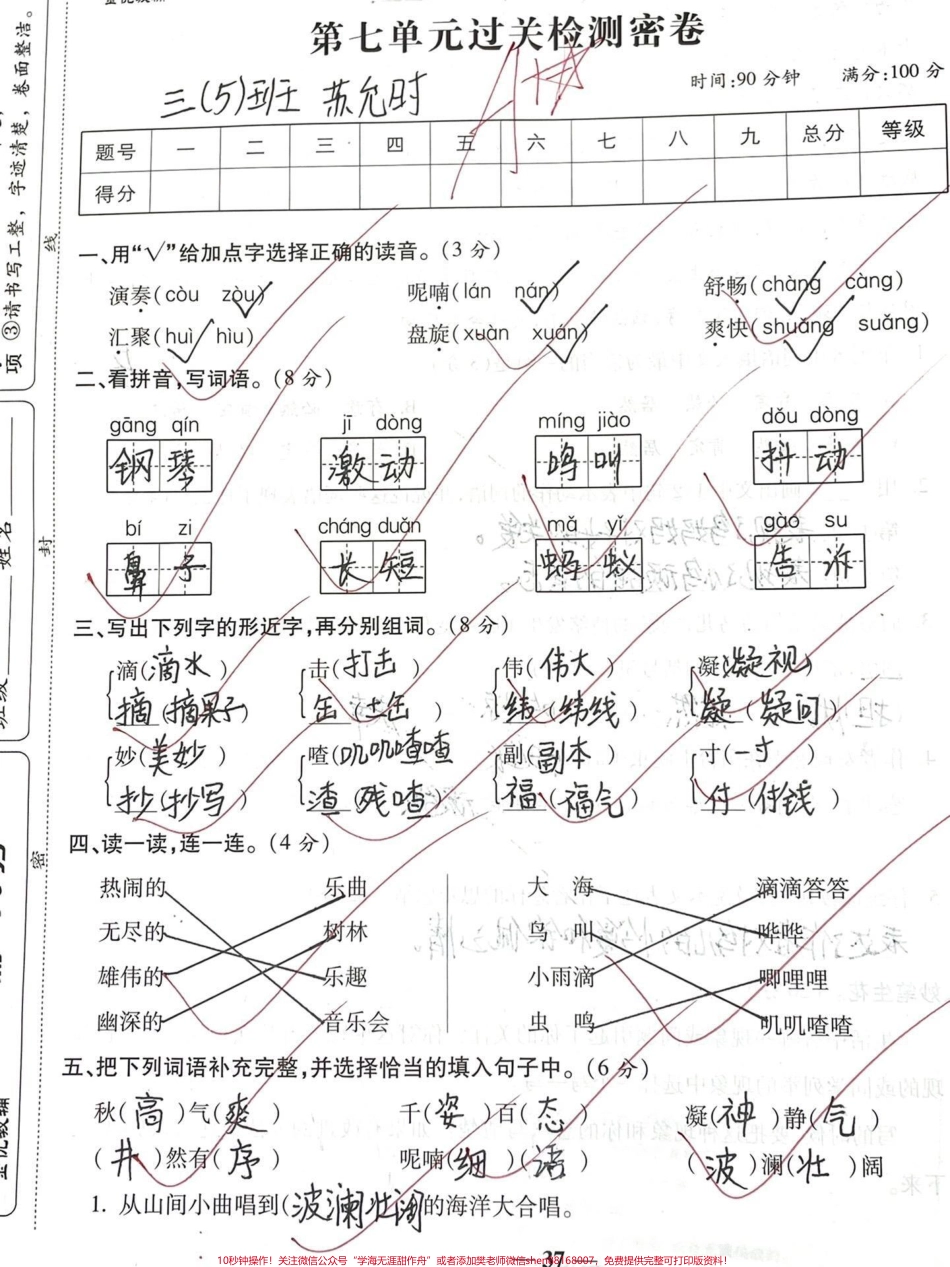 第七单元过关检测密卷
三(5)班 苏允时
时间:90分钟 满分:100分
题号 一 二 三 四 五 六 七 八 九 总分 等级
得分
一、用“√”给加点字选择正确的读音。(3分)
演奏(còu zòu) 呢喃(lán nán) 舒畅(chàng càng)
汇聚(huì hìu) 盘旋(xuàn xuán) 爽快(shuǎng suǎng)
二、看拼音,写词语。(8分)
gāng qín jī dòng míng jiào dǒu dòng
钢琴 激动 鸣叫 抖动
bí zi cháng duǎn mǎ yǐ gào su
鼻子 长短 蚂蚁 告诉
三、写出下列字的形近字,再分别组词。(8分)
滴(滴水) 击(打击) 伟(伟大) 凝(凝视)
摘(摘果子) 缶(土缶) 纬(纬线) 疑(疑问)
妙(美妙) 喳(叽叽喳喳 副(副本 寸(一寸)
抄(抄写) 渣(残渣) 福(福气) 付(付钱)
四、读一读,连一连。(4分)
热闹的 乐曲 大海 滴滴答答
无尽的 树林 鸟叫 哗哗
雄伟的 乐趣 小雨滴 唧哩哩
幽深的 音乐会 虫鸣 叽叽喳喳
五、把下列词语补充完整,并选择恰当的填入句子中。(6分)
秋(高)气(爽) 千(姿)百(态) 凝(神)静(气)
(井)然有(序) 呢喃(细)(语) (波)澜(壮)阔
1. 从山间小曲唱到(波澜壮阔的海洋大合唱。
37
项 ③请书写工整,字迹清楚,卷面整洁。
班级 姓名
密 封 线
10秒钟操作!关注微信公众号“学海无涯甜作舟”或者添加樊老师微信shen68168007,免费提供完整可打印版资料!